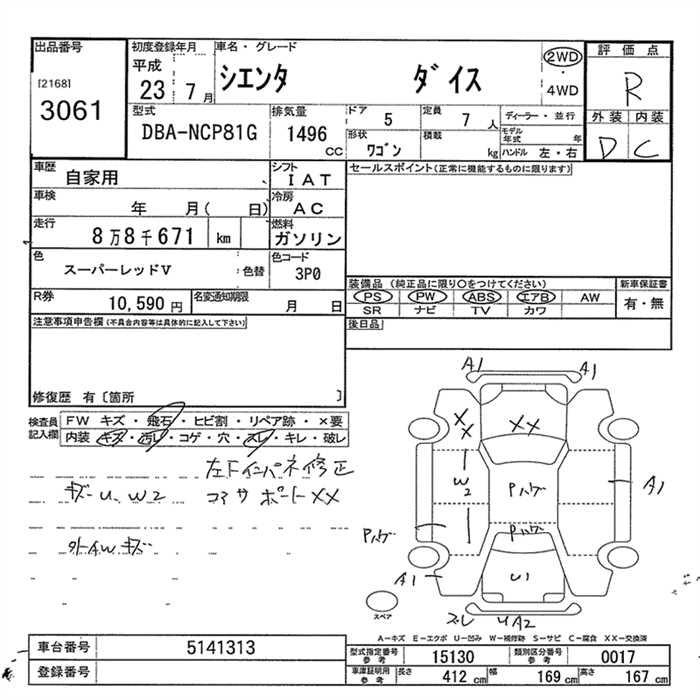 出品番号
[2168]
3061
初度登録年月
平成
23 7月
車名・グレード
シエンタ ダイス
2WD
・
4WD
評価点
R
外装 内装
D C
型式
DBA-NCP81G
排気量
1496
CC
ドア 5
定員 7 人
ディーラー・並行
モデル年式 年
形状
ワゴン
積載 kg
ハンドル 左・右
車歴
自家用
シフト
IAT
セールスポイント(正常に機能するものに限ります)
車検
年 月( 日)
冷房
AC
走行
8万8千671 km
燃料
ガソリン
色
スーパーレッドV
: 色替
色コード
3P0
装備品 (純正品に限り〇をつけてください)
新車保証書
PS PW ABS エアB AW
有・無
SR ナビ TV カワ
R券
10,590 円
名変通知期限
月 日
後日品
注意事項申告欄(不具合内容等は具体的に記入して下さい)
修復歴 有〔箇所 〕
検査員
記入欄
FW キズ・飛石・ヒビ割・リペア跡・×要
内装・キズ・汚レ・コゲ・穴・スレ・キレ・破レ
左下インパネ修正
キズーU、W2
コアサポートXX
外AWキズ
A1
A1
XX
XX
W2
Pハゲ
A1
Pハゲ
Pハゲ
A1
U1
スペア
ズレ
UA2
A-キズ E-エクボ U-凹み W-補修跡 S-サビ C-腐食 XX-交換済
車台番号
5141313
登録番号
型式指定番号
参考
15130
類別区分番号
参考
0017
車庫証明用
参考
長さ 412 cm
幅 169 cm
高さ 167 cm